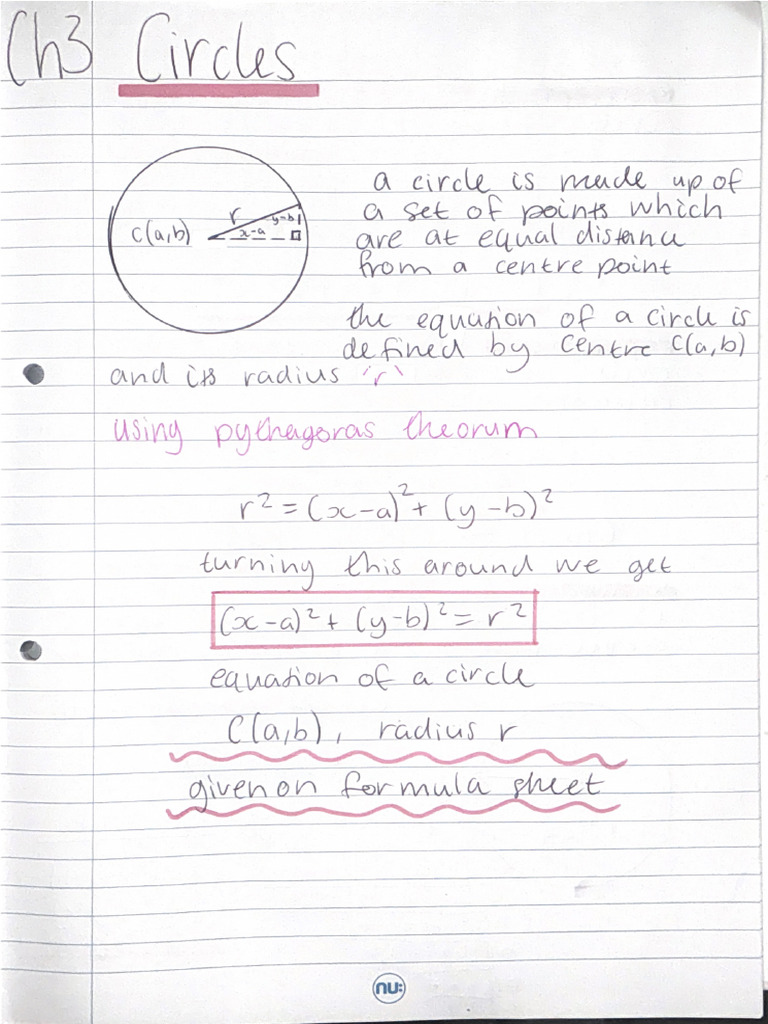 Ch3 Circles
r
y-b
C(a,b)
x-a
a circle is made up of
a set of points which
are at equal distance
from a centre point
the equation of a circle is
defined by centre C(a,b)
and its radius 'r'
using pythagoras theorum
r² = (x-a)² + (y-b)²
turning this around we get
(x-a)² + (y-b)² = r²
equation of a circle
C(a,b), radius r
given on formula sheet
nu: